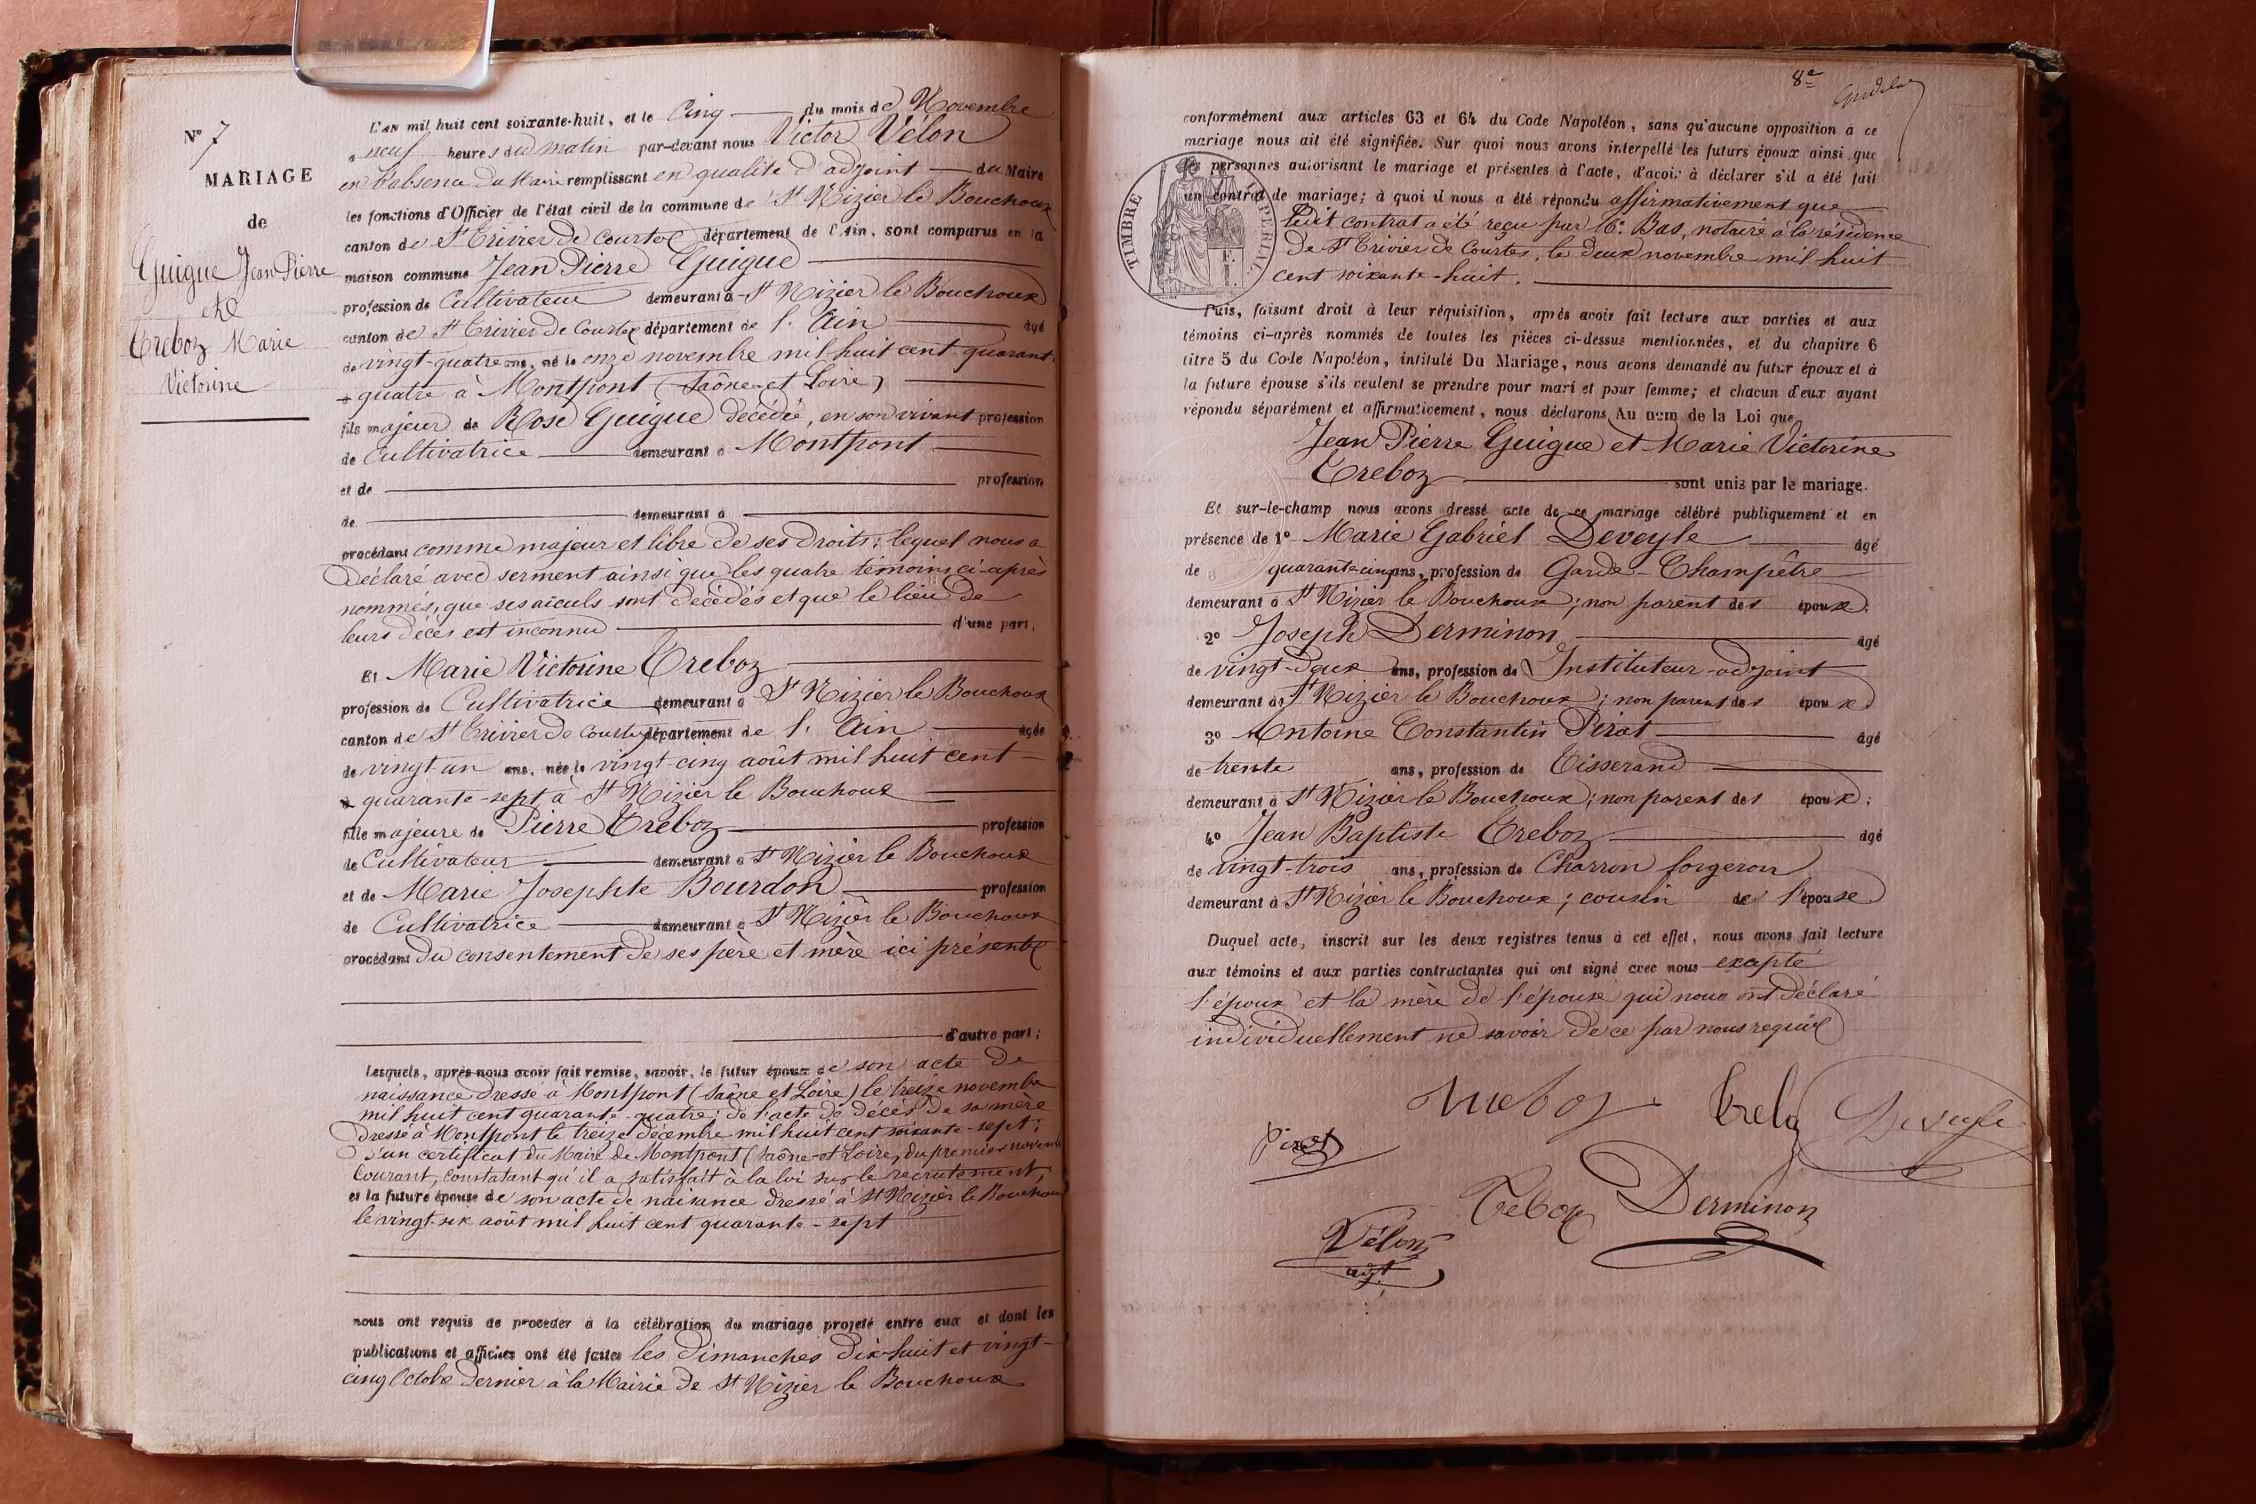 N° 7
MARIAGE
de
Guigue Jean Pierre
et
Treboz Marie
Victorine
L'an mil huit cent soixante-huit, et le Cinq du mois de Novembre
a neuf heures du matin par-devant nous Victor Vélon
en l'absence du Maire remplissant en qualité d'adjoint du Maire
les fonctions d'Officier de l'état civil de la commune de St Nizier le Bouchoux
canton de St Trivier de Courtes département de l'Ain, sont comparus en la
maison commune Jean Pierre Guigue
profession de Cultivateur demeurant à St Nizier le Bouchoux
canton de St Trivier de Courtes département de l'Ain âgé
de vingt-quatre ans, né le onze novembre mil huit cent quarant-
quatre à Montpont (Saône et Loire)
fils majeur de Rose Guigue décédée, en son vivant profession
de Cultivatrice demeurant à Montpont
et de profession
de demeurant à
procédant comme majeur et libre de ses droits; lequel nous a
déclaré avec serment ainsi que les quatre témoins ci-après
nommés, que ses aïeuls sont décédés et que le lieu de
leurs décès est inconnu d'une part,
Et Marie Victorine Treboz
profession de Cultivatrice demeurant à St Nizier le Bouchoux
canton de St Trivier de Courtes département de l'Ain âgée
de vingt un ans, née le vingt cinq août mil huit cent
quarante-sept à St Nizier le Bouchoux
fille majeure de Pierre Treboz profession
de Cultivateur demeurant à St Nizier le Bouchoux
et de Marie Josephte Bourdon profession
de Cultivatrice demeurant à St Nizier le Bouchoux
procédant du consentement de ses père et mère ici présents
d'autre part;
Lesquels, après nous avoir fait remise, savoir, le futur époux de son acte de
naissance dressé à Montpont (Saône et Loire) le treize novembre
mil huit cent quarante-quatre; de l'acte de décès de sa mère
dressé à Montpont le treize décembre mil huit cent soixante-sept;
d'un certificat du Maire de Montpont (Saône-et-Loire, du premier novembre
Courant, constatant qu'il a satisfait à la loi sur le recrutement,
et la future épouse de son acte de naissance dressé à St Nizier le Bouchoux
le vingt-six août mil huit cent quarante-sept
nous ont requis de procéder à la célébration du mariage projeté entre eux et dont les
publications et affiches ont été faites les dimanches dix-huit et vingt-
cinq Octobre dernier à la Mairie de St Nizier le Bouchoux
8e
conformément aux articles 63 et 64 du Code Napoléon, sans qu'aucune opposition à ce
mariage nous ait été signifiée. Sur quoi nous avons interpellé les futurs époux ainsi que
les personnes autorisant le mariage et présentes à l'acte, d'avoir à déclarer s'il a été fait
un contrat de mariage; à quoi il nous a été répondu affirmativement que
ledit contrat a été reçu par Me Bas, notaire à la résidence
de St Trivier de Courtes, le deux novembre mil huit
cent soixante-huit.
TIMBRE IMPERIAL
Puis, faisant droit à leur réquisition, après avoir fait lecture aux parties et aux
témoins ci-après nommés de toutes les pièces ci-dessus mentionnées, et du chapitre 6
titre 5 du Code Napoléon, intitulé Du Mariage, nous avons demandé au futur époux et à
la future épouse s'ils veulent se prendre pour mari et pour femme; et chacun d'eux ayant
répondu séparément et affirmativement, nous déclarons Au nom de la Loi que
Jean Pierre Guigue et Marie Victorine
Treboz sont unis par le mariage.
Et sur-le-champ nous avons dressé acte de ce mariage célébré publiquement et en
présence de 1° Marie Gabriel Deveyle âgé
de quarante cinq ans, profession de Garde-Champêtre
demeurant à St Nizier le Bouchoux; non parent des époux;
2° Joseph Derminon âgé
de vingt-deux ans, profession de Instituteur-adjoint
demeurant à St Nizier le Bouchoux; non parent des époux
3° Antoine Constantin Pirat âgé
de trente ans, profession de Tisserand
demeurant à St Nizier le Bouchoux; non parent des époux;
4° Jean Baptiste Treboz âgé
de vingt-trois ans, profession de Charron forgeron
demeurant à St Nizier le Bouchoux; cousin de l'épouse
Duquel acte, inscrit sur les deux registres tenus à cet effet, nous avons fait lecture
aux témoins et aux parties contractantes qui ont signé avec nous excepté
l'époux et la mère de l'épouse qui nous ont déclaré
individuellement ne savoir de ce par nous requis
Treboz Treboz Deveyle
Pirat
Treboz Derminon
Vélon
adjt